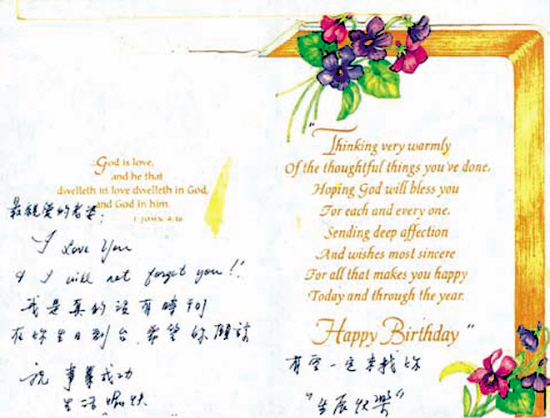 God is love,
and he that
dwelleth in love dwelleth in God,
and God in him.
I JOHN 4:16
最親愛的老婆:
I Love You
& I will not forget you!!
我是真的沒有時間
在妳生日到台,希望妳
祝 事業成功
生活愉快
"Thinking very warmly
Of the thoughtful things you've done.
Hoping God will bless you
For each and every one.
Sending deep affection
And wishes most sincere
For all that makes you happy
Today and through the year.
Happy Birthday"
有空一定來找妳
"生辰快樂"